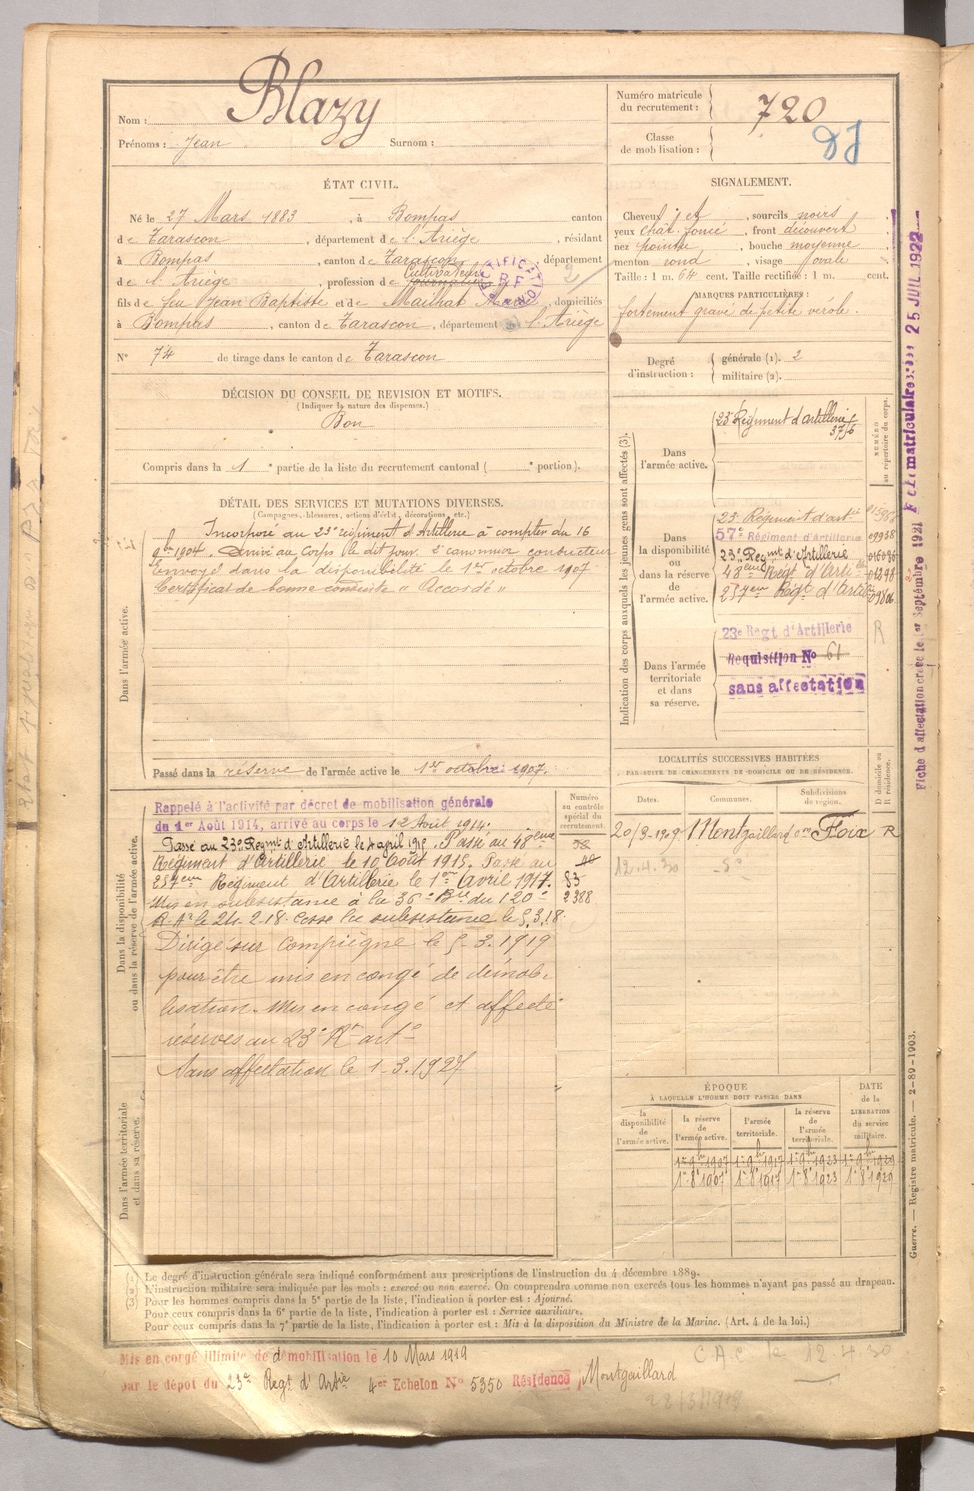 Nom : Blazy
Prénoms : Jean Surnom :
Numéro matricule du recrutement : 720
Classe de mobilisation :
ÉTAT CIVIL.
Né le 27 Mars 1883, à Bompas canton
de Tarascon, département de l'Ariège, résidant
à Bompas, canton de Tarascon, département
Cultivateur
de l'Ariège, profession de
fils de feu Jean Baptiste et de Mailhat Marie, domiciliés
à Bompas, canton de Tarascon, département de l'Ariège
N° 74 de tirage dans le canton de Tarascon
SIGNALEMENT.
Cheveux et, sourcils noirs
yeux chat. foncé, front découvert
nez pointu, bouche moyenne
menton rond, visage ovale
Taille : 1 m. 64 cent. Taille rectifiée : 1 m. cent.
MARQUES PARTICULIÈRES :
fortement gravé de petite vérole.
Degré d'instruction :
générale (1). 2
militaire (2).
DÉCISION DU CONSEIL DE REVISION ET MOTIFS.
(Indiquer la nature des dispenses.)
Bon
Compris dans la 1e partie de la liste du recrutement cantonal ( e portion).
DÉTAIL DES SERVICES ET MUTATIONS DIVERSES.
(Campagnes, blessures, actions d'éclat, décorations, etc.)
Dans l'armée active.
Incorporé au 23e régiment d'Artillerie à compter du 16
9bre 1904. Arrivé au Corps le dit jour. 2e canonnier conducteur
Envoyé dans la disponibilité le 1er octobre 1907
Certificat de bonne conduite "Accordé"
Passé dans la réserve de l'armée active le 1er octobre 1907.
Indication des corps auxquels les jeunes gens sont affectés (3).
NUMÉRO au répertoire du corps.
Dans l'armée active.
23e Régiment d'artillerie
Dans la disponibilité ou dans la réserve de l'armée active.
23e Régiment d'art
57e Régiment d'Artillerie 09958
23e Regmt d'Artillerie
48eme Regt d'Arti
257eme Regt d'Arti
Dans l'armée territoriale et dans sa réserve.
23e Regt d'Artillerie R
Requisition N° 61
sans affectation
Dans la disponibilité ou dans la réserve de l'armée active.
Numéro au contrôle spécial du recrutement
Rappelé à l'activité par décret de mobilisation générale
du 1er Août 1914, arrivé au corps le 12 Août 1914.
Passé au 23e Regmt d'Artillerie le 4 april 1915. Passé au 48eme
Régiment d'Artillerie le 10 Août 1915. Passé au
257eme Régiment d'Artillerie le 1er Avril 1917. 83
Mis en subsistance à la 36e Bie du 120e 2388
R.Ale le 24.2.18. Cesse la subsistance le 5.3.18
Dirigé sur Compiègne le 5-3.1919
pour être mis en congé de démob-
lisation. Mis en congé et affecté
réserves au 23e Rt artie
Sans affectation le 1-3.1927
Dans l'armée territoriale et dans sa réserve.
LOCALITÉS SUCCESSIVES HABITÉES
PAR SUITE DE CHANGEMENTS DE DOMICILE OU DE RÉSIDENCE.
Dates. Communes. Subdivisions de région. D domicile ou R résidence.
20/3-1909 Montgaillard Foix R
12.4.30
ÉPOQUE
À LAQUELLE L'HOMME DOIT PASSER DANS
DATE de la LIBÉRATION du service militaire.
la disponibilité de l'armée active. la réserve de l'armée active. l'armée territoriale. la réserve de l'armée territoriale.
1er 9bre 1907 1er 9bre 1917 1er 9bre 1923 1er 9bre 1929
1er 8bre 1907 1er 8bre 1917 1er 8bre 1923 1er 8bre 1929
(1) Le degré d'instruction générale sera indiqué conformément aux prescriptions de l'instruction du 4 décembre 1889.
(2) L'instruction militaire sera indiquée par les mots : exercé ou non exercé. On comprendra comme non exercés tous les hommes n'ayant pas passé au drapeau.
(3) Pour les hommes compris dans la 5e partie de la liste, l'indication à porter est : Ajourné.
Pour ceux compris dans la 6e partie de la liste, l'indication à porter est : Service auxiliaire.
Pour ceux compris dans la 7e partie de la liste, l'indication à porter est : Mis à la disposition du Ministre de la Marine. (Art. 4 de la loi.)
Mis en congé illimité de démobilisation le 10 Mars 1919
par le dépot du 23e Regt d'Artie 4er Echelon N° 5350 Résidence Montgaillard
C.A.C. le 12.4.30
28/3/1919
Guerre. — Registre matricule. — 2-89-1903.
Fiche d'affectation créée le 1er Septembre 1921
F che matriculaire 25 JUIL 1922